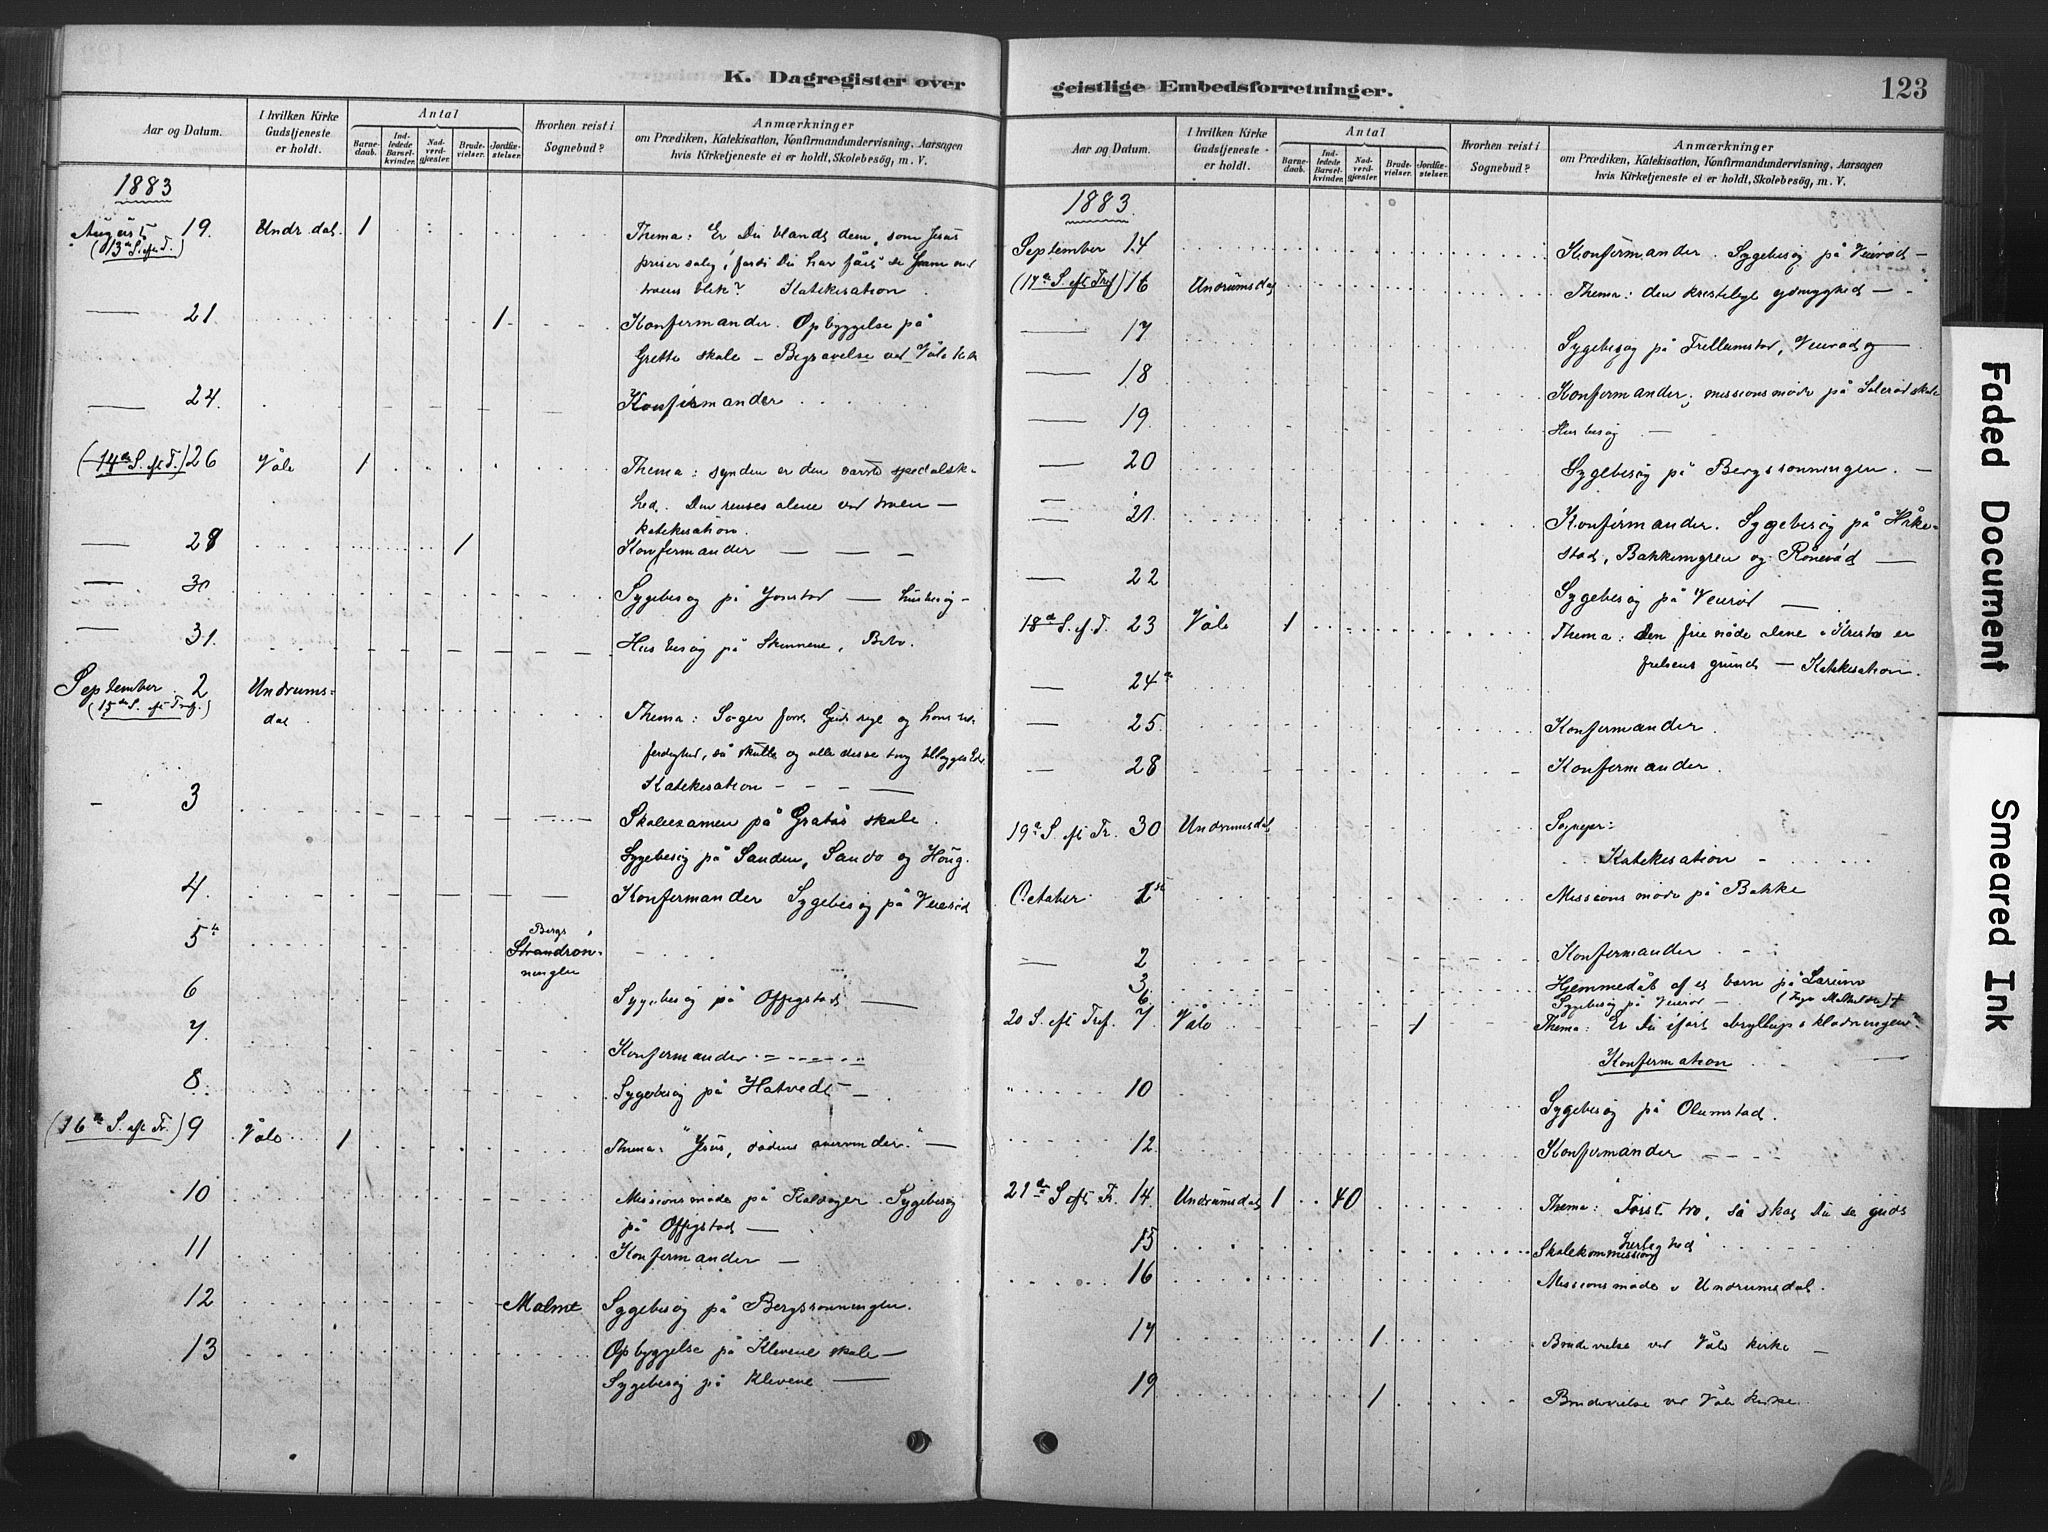 K. Dagregister over
Aar og Datum.
I hvilken Kirke Gudstjeneste er holdt.
Antal
Barne-daab.
Ind-ledede Barsel-kvinder.
Nad-verd-gjæster.
Brude-vielser.
Jordfæ-stelser.
Hvorhen reist i Sognebud?
Anmærkninger
om Prædiken, Katekisation, Konfirmandundervisning, Aarsagen
hvis Kirketjeneste ei er holdt, Skolebesög, m. V.
1883
August 19. Undr.dal. 1 Thema: Er Du blandt dem, som Jesus
(13de S. eft. T.) priser salig, fordi Du har fået se ham med
troens blik? Katekisation
— 21. 1 Konfermander. Opbyggelse på
Grette skole — Begravelse ved Våle kirke
— 24. Konfirmander
(14de S. eft. T.) 26 Våle 1 Thema: synden er den værste spedalsk-
hed. Den renses alene ved troen —
katekisation.
— 28 1 Konfermander — — —
— 30 Sygebesøg på — husbesøg -
— 31. Husbesøg på
September 2 Undrums-
(15de S. eft. Tref.) dal Thema: Søger først Guds rige og hans ret-
færdighed, så skulle og alle disse ting tillægges Eder
Katekisation - - - —
- 3 Skoleexamen på skole.
Sygebesøg på Sanden, Sando og Houg.
4. Konfermander Sygebesøg på Veierød
5te Bergs
Strandrøn-
ningen
6 Sygebesøg på Offigstad —
7. Konfermander
8. Sygebesøg på Hatvedt —
(16de S. eft. Tr.) 9 Våle 1 Thema: "Jesus, dødens overvinder." —
10 Missionsmøde på Sygebesøg
på Offigstad —
11 Konfermander —
12 Malme Sygebesøg på Bergsrønningen.
13 Opbyggelse på Klevene skole —
Sygebesøg på Klevene —
geistlige Embedsforretninger.
123
Aar og Datum.
I hvilken Kirke Gudstjeneste er holdt.
Antal
Barne-daab.
Ind-ledede Barsel-kvinder.
Nad-verd-gjæster.
Brude-vielser.
Jordfæ-stelser.
Hvorhen reist i Sognebud?
Anmærkninger
om Prædiken, Katekisation, Konfirmandundervisning, Aarsagen
hvis Kirketjeneste ei er holdt, Skolebesög, m. V.
1883
September 14 Konfermander. Sygebesøg på Veierød —
(17de S. eft. Tref.) 16 Undrumsdal Thema: den kristelige ydmyghed —
— 17 Sygebesøg på
— 18 Konfermander; missionsmøde på Solerød skole
— 19. Husbesøg —
— 20 Sygebesøg på Bergsrønningen. —
— 21. Konfirmander. Sygebesøg på Håke-
stad, Bakkengren og Rånerød —
— 22 Sygebesøg på Veierød —
18de S. ef. T. 23 Våle 1 Thema: Den frie nåde alene i Kristo er
frelsens grund — Katekisation.
— 24de
— 25 Konfermander.
— 28 Konfermander.
19de S. eft Tr. 30 Undrumsdal
Katekisation -
October 1ste Missionsmøde på Bakke
— 2 Konfermander
3. Hjemmedåb af et barn på
6 Sygebesøg på Veierød —
20 S. eft Tref. 7. Våle 1 Thema: Er Du iført bryllupsklædningen?
Konfermation
" 10 Sygebesøg på Olumstad.
12 Konfermander
21de S. eft. Tr. 14. Undrumsdal 1 40 Thema: Først tro, så skal Du se guds
herlighed
15 Skolekommission
16 Missionsmøde i Undrumsdal.
17 1 Brudevielse ved Våle kirke —
19 1 Brudevielse ved Våle kirke.
Faded Document
Smeared Ink